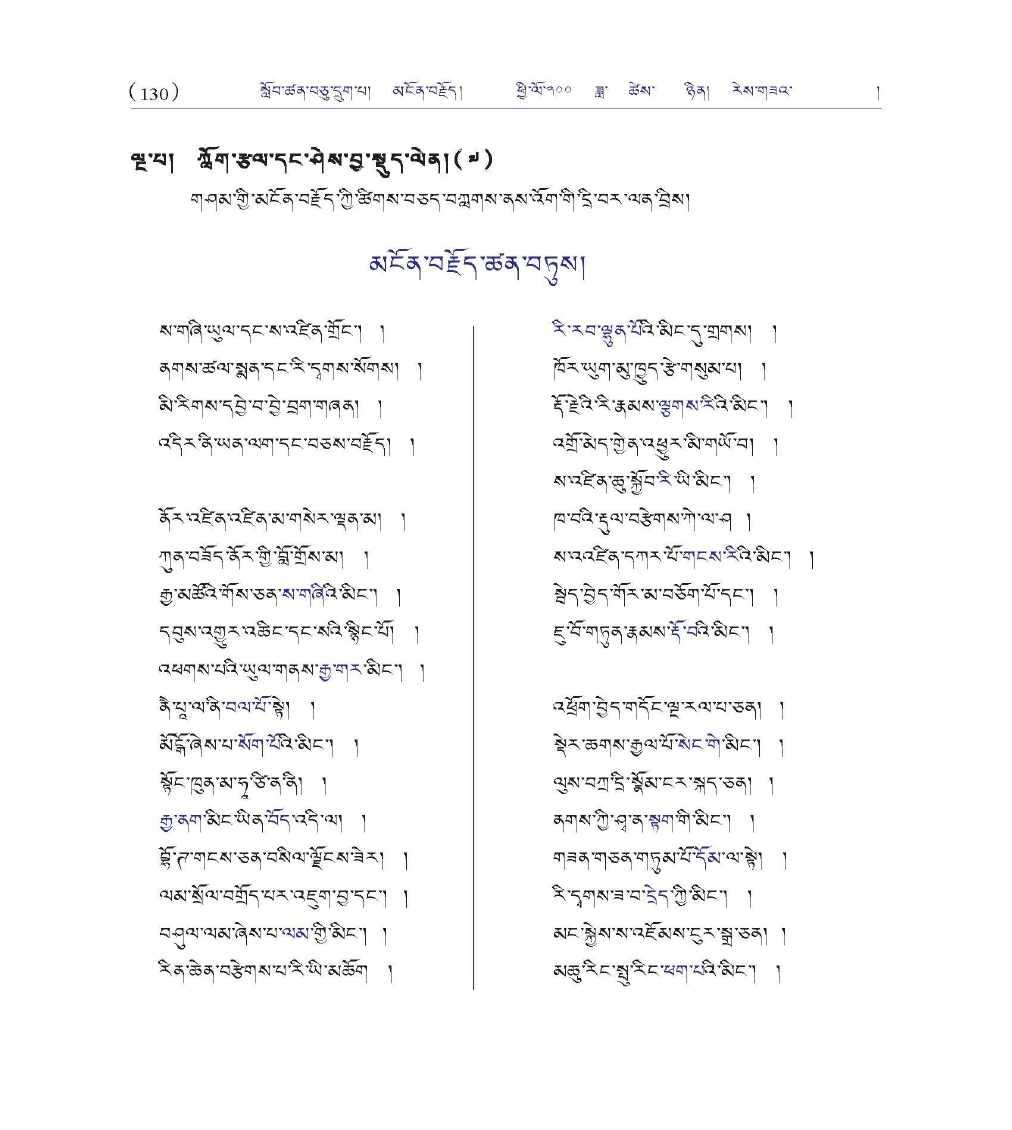 (130) སློབ་ཚན་བཅུ་དྲུག་པ། མངོན་བརྗོད། ཕྱི་ལོ་༢༠༠ ཟླ་ ཚེས་ ཉིན། རེས་གཟའ་ །
ལྔ་པ། ཀློག་རྩལ་དང་ཤེས་བྱ་སྡུད་ལེན།(༧)
གཤམ་གྱི་མངོན་བརྗོད་ཀྱི་ཚིགས་བཅད་བཀླགས་ནས་འོག་གི་དྲི་བར་ལན་བྲིས།
མངོན་བརྗོད་ཚན་བཏུས།
ས་གཞི་ཡུལ་དང་ས་འཛིན་གྲོང་། །
ནགས་ཚལ་སྨན་དང་རི་དྭགས་སོགས། །
མི་རིགས་དབྱེ་བ་བྱེ་བྲག་གཞན། །
འདིར་ནི་ཡན་ལག་དང་བཅས་བརྗོད། །
ནོར་འཛིན་འཛིན་མ་གསེར་ལྡན་མ། །
ཀུན་བཟོད་ནོར་གྱི་བློ་གྲོས་མ། །
རྒྱ་མཚོའི་གོས་ཅན་ས་གཞིའི་མིང་། །
དབུས་འགྱུར་འཆིང་དང་སའི་སྙིང་པོ། །
འཕགས་པའི་ཡུལ་གནས་རྒྱ་གར་མིང་། །
ནེ་པཱ་ལ་ནི་བལ་པོ་སྟེ། །
མོང་གོ་ཞེས་པ་སོག་པོའི་མིང་། །
སྟོང་ཁུན་མ་ཧཱ་ཙི་ན་ནི། །
རྒྱ་ནག་མིང་ཡིན་བོད་འདི་ལ། །
བྷོ་ཊ་གངས་ཅན་བསིལ་ལྗོངས་ཟེར། །
ལམ་སྲོལ་བགྲོད་པར་འཇུག་བྱ་དང་། །
བཤུལ་ལམ་ཞེས་པ་ལམ་གྱི་མིང་། །
རིན་ཆེན་བརྩེགས་པ་རི་ཡི་མཆོག །
རི་རབ་ལྷུན་པོའི་མིང་དུ་གྲགས། །
ཁོར་ཡུག་མུ་ཁྱུད་རྩེ་གསུམ་པ། །
རྡོ་རྗེའི་རི་རྣམས་ལྕགས་རིའི་མིང་། །
འགྲོ་མེད་གྱེན་འཕྱུར་མི་གཡོ་བ། །
ས་འཛིན་ཆུ་སྐྱོབ་རི་ཡི་མིང་། །
ཁ་བའི་རྡུལ་བརྩེགས་ཀེ་ལ་ཤ །
ས་འའཛིན་དཀར་པོ་གངས་རིའི་མིང་། །
སྲེད་བྱེད་གོར་མ་བཅོག་པོ་དང་། །
ཇུ་བོ་གཏུན་རྣམས་རྡོ་བའི་མིང་། །
འཕྲོག་བྱེད་གདོང་ལྔ་རལ་པ་ཅན། །
སྡེར་ཆགས་རྒྱལ་པོ་སེང་གེ་མིང་། །
ལུས་བཀྲ་དྲི་སྣོམ་ངར་སྐད་ཅན། །
ནགས་ཀྱི་ཤྭ་ན་སྟག་གི་མིང་། །
གཟན་གཅན་གཏུམ་པོ་དོམ་ལ་སྟེ། །
རི་དྭགས་ཟ་བ་དྲེད་ཀྱི་མིང་། །
མང་སྐྱེས་ས་འཇོམས་ངུར་སྒྲ་ཅན། །
མཆུ་རིང་སྤུ་རིང་ཕག་པའི་མིང་། །